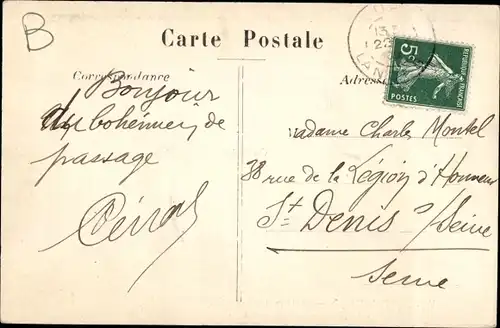 B
Carte Postale
Correspondance
Adresse
5c
POSTES
REPUBLIQUE FRANÇAISE
Bonjour
bohémien de
passage
Madame Charles Montel
38 rue de la Légion d'Honneur
St Denis s/Seine
Seine